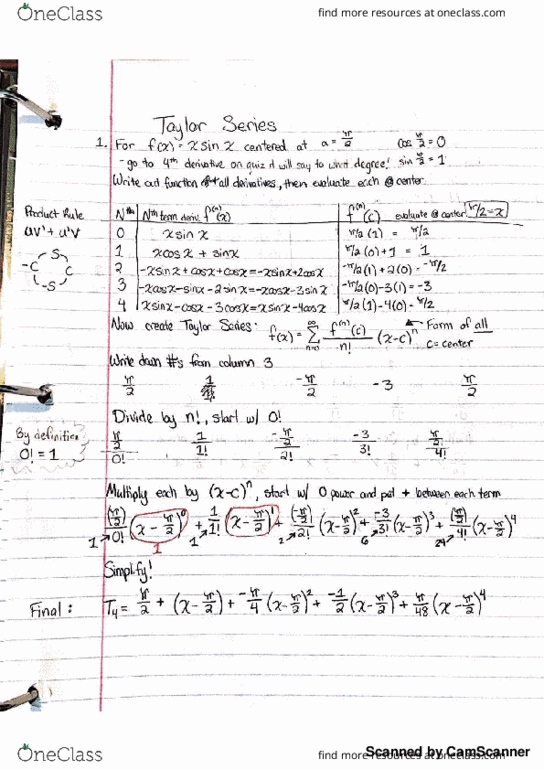 OneClass
find more resources at oneclass.com
Taylor Series
1. For f(x) = x sin x centered at a = π/2 cos π/2 = 0
- go to 4th derivative on quiz it will say to what degree! sin π/2 = 1
Write out function & all derivatives, then evaluate each @ center.
Product Rule
uv' + u'v
S
-C C
-S
Nth | Nth term deriv. f^(n)(x) | f^(n)(c) evaluate @ center π/2 = x
0 | x sin x | π/2 (1) = π/2
1 | x cos x + sin x | π/2 (0) + 1 = 1
2 | -x sin x + cos x + cos x = -x sin x + 2cos x | -π/2 (1) + 2(0) = -π/2
3 | -x cos x - sin x - 2 sin x = -x cos x - 3 sin x | -π/2 (0) - 3(1) = -3
4 | x sin x - cos x - 3 cos x = x sin x - 4 cos x | π/2 (1) - 4(0) = π/2
Now create Taylor Series: f(x) = ∞ Σ n=0 f^(n)(c)/n! (x-c)^n ← Form of all
c = center
Write down #s from column 3
π/2 1 -π/2 -3 π/2
Divide by n!, start w/ 0!
By definition
0! = 1
π/2/0! 1/1! -π/2/2! -3/3! π/2/4!
Multiply each by (x-c)^n, start w/ 0 power and put + between each term
(π/2)/0! (x - π/2)^0 + 1/1! (x - π/2)^1 + (-π/2)/2! (x - π/2)^2 + -3/3! (x - π/2)^3 + (π/2)/4! (x - π/2)^4
1 1 1 2 6 24
Simplify!
Final: T4 = π/2 + (x - π/2) + -π/4 (x - π/2)^2 + -1/2 (x - π/2)^3 + π/48 (x - π/2)^4
Scanned by CamScanner
OneClass
find more resources at oneclass.com